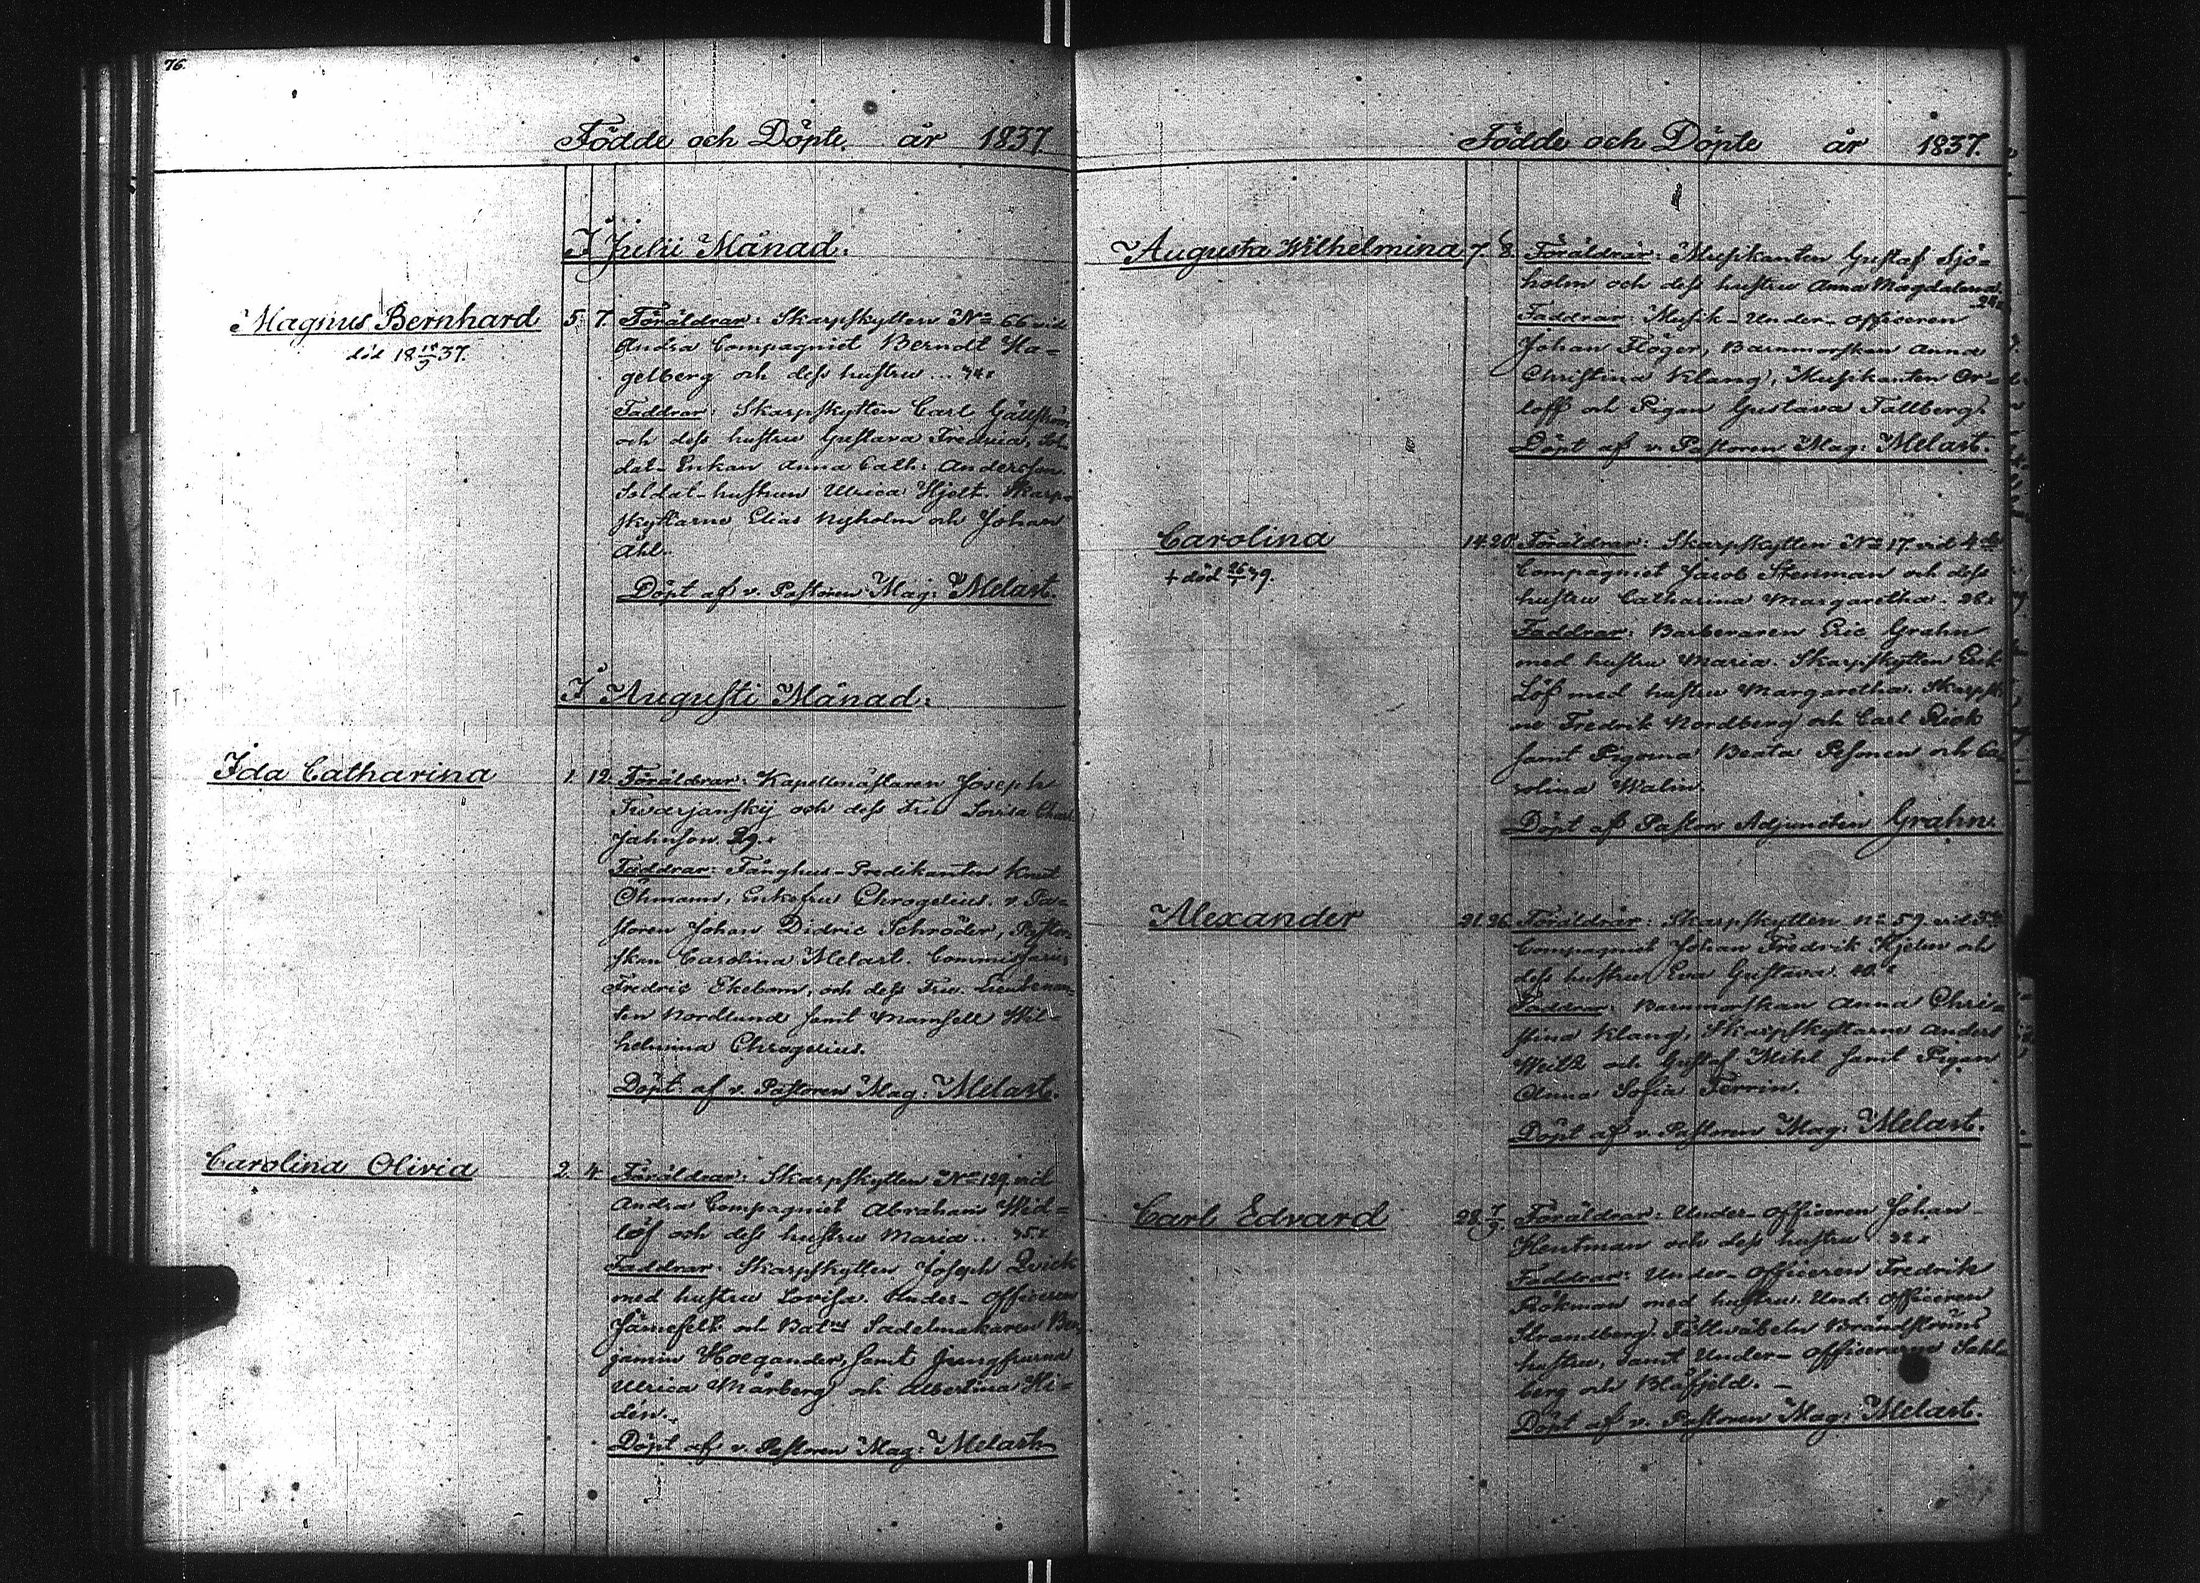 76.
Födde och Döpte. år 1837.
I Julii Månad.
Magnus Bernhard 5. 7. Föräldrar: Skarpskytten No 66 vid
död 18 18/9 37. Andra Compagniet Berndt Ha=
gelberg och dess hustru ...
Faddrar: Skarpskytten Carl Gällström
och dess hustru Gustava Fredrica, Sol=
dat-Enkan Anna Cath: Andersson.
Soldat-hustrun Ulrica Hjelt. Skarp=
skyttarne Elias Nyholm och Johan
Åhl.
Döpt af v. Pastoren Mag: Melart.
I Augusti Månad:
Ida Catharina 1. 12. Föräldrar: Kapellmästaren Joseph
Tvarjanskij och dess Fru Lovisa Charl
Jahnson. 29.
Faddrar: Fånghus-Predikanten Knut
Öhmann, Enkefru Chrogelius. v. Pa=
storen Johan Didric Schröder, Pastor=
skan Carolina Melart. Commissarius
Fredric Ekebom, och dess Fru. Lieutenan=
ten Nordlund samt Mamsell Wil=
helmina Chrogelius.
Döpt af v. Pastoren Mag: Melart.
Carolina Olivia 2. 4. Föräldrar: Skarpskytten No 129 vid
Andra Compagniet Abraham Wid=
löf och dess hustru Maria ... 35.
Faddrar: Skarpskytten Joseph Qvick
med hustru Lovisa. Under-officeren
Jämefelt och Batns Sadelmakaren Ben
jamin Hoegander, samt Jungfrurna
Ulrica Mårberg och Albertina Hi=
dén.
Döpt af v. Pastoren Mag: Melart
Födde och Döpte år 1837.
Augusta Wilhelmina 7. 8. Föräldrar: Musikanten Gustaf Sjö=
holm och dess hustru Anna Magdalena.
Faddrar: Musik-Under-officeren
Johan Flöger, Barnmorskan Anna
Christina Klang, Musikanten Or=
loff och Pigan Gustava Tallberg.
Döpt af v. Pastoren Mag: Melart.
Carolina 14. 20. Föräldrar: Skarpskytten No 17 vid 4de
+ död 26/1 39. Compagniet Jacob Stenman och dess
hustru Catharina Margaretha. 26.
Faddrar: Barberaren Eric Grahn
med hustru Maria. Skarpskytten Erik
Löf med hustru Margaretha. Skarpsk:
ne Fredrik Nordberg och Carl Rick
samt Pigorna Beata Pesonen och Ca=
rolina Walin.
Döpt af Pastors Adjuncten Grahn.
Alexander 21. 26. Föräldrar: Skarpskytten No 59 vid
Compagniet Johan Fredrik Hjelm och
dess hustru Eva Gustava. 40.
Faddrar: Barnmorskan Anna Chri=
stina Klang, Skarpskyttarne Anders
Weilk och Gustaf Mihl samt Pigan
Anna Sofia Ferrin.
Döpt af v. Pastoren Mag: Melart.
Carl Edvard 28. 7/9. Föräldrar: Under-officeren Johan
Hentman och dess hustru 32.
Faddrar: Under-officeren Fredrik
Rökman med hustru. Und: officeren
Strandberg. Fältwäbeln Brandströms
hustru, samt Under-officerarne Sahl=
berg och Blåfjeld.
Döpt af v. Pastoren Mag: Melart.